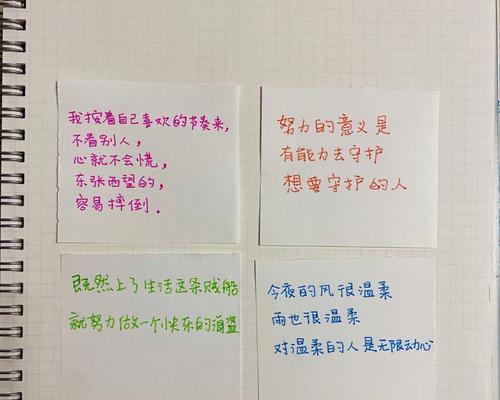 我按着自己喜欢的节奏来,
不看别人,
心就不会慌,
东张西望的,
容易摔倒.
努力的意义是
有能力去守护
想要守护的人
既然上了生活这条贱船
就努力做一个快乐的海盗
今夜的风很温柔
雨也很温柔
对温柔的人是无限动心